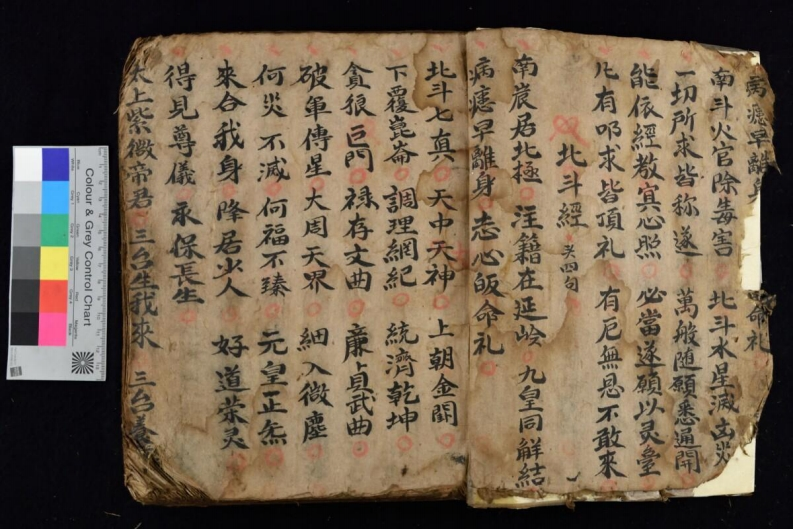 病瘧早離身 命礼
南斗火官除毒害 北斗水星滅凶災
一切所求皆称遂 萬般随願悉通開
能依經教冥心照 必當遂願以灵臺
凡有叩求皆頂礼 有厄無恳不敢來
北斗經 头四句
南宸居北極 注籍在延岭 九皇同觧結
病瘧早離身 志心皈命礼
北斗七真 天中天神 上朝金闕
下覆崑崙 調理綱紀 統濟乾坤
貪狼巨門 禄存文曲 廉貞武曲
破軍傳星 大周天界 細入微塵
何災不滅 何福不臻 元皇正炁
來合我身 降居少人 好道荣灵
得見尊儀 永保長生
太上紫微帝君 三台生我來 三台養
Colour & Grey Control Chart